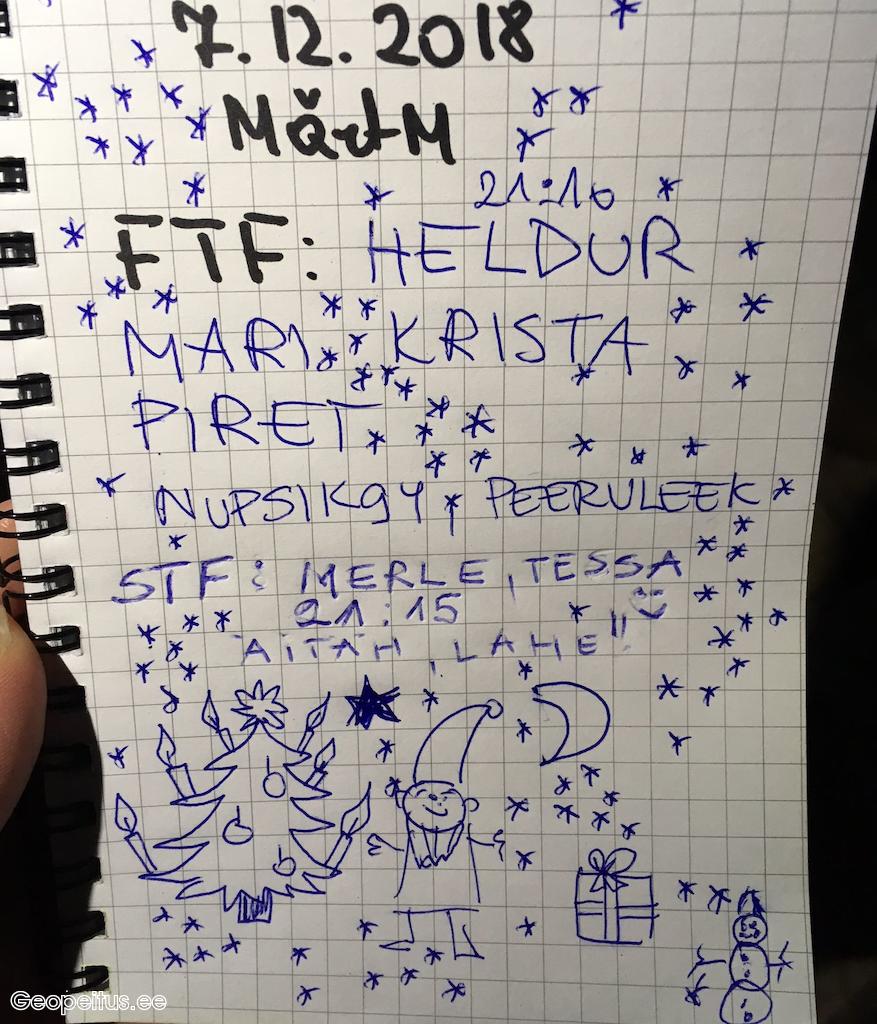 7.12.2018
MärtM
21:10
FTF: HELDUR
MARI KRISTA
PIRET
NUPSIK94, PEERULEEK
STF: MERLE, TESSA
21:15
AITÄH, LAHE!!
Geopeitus.ee